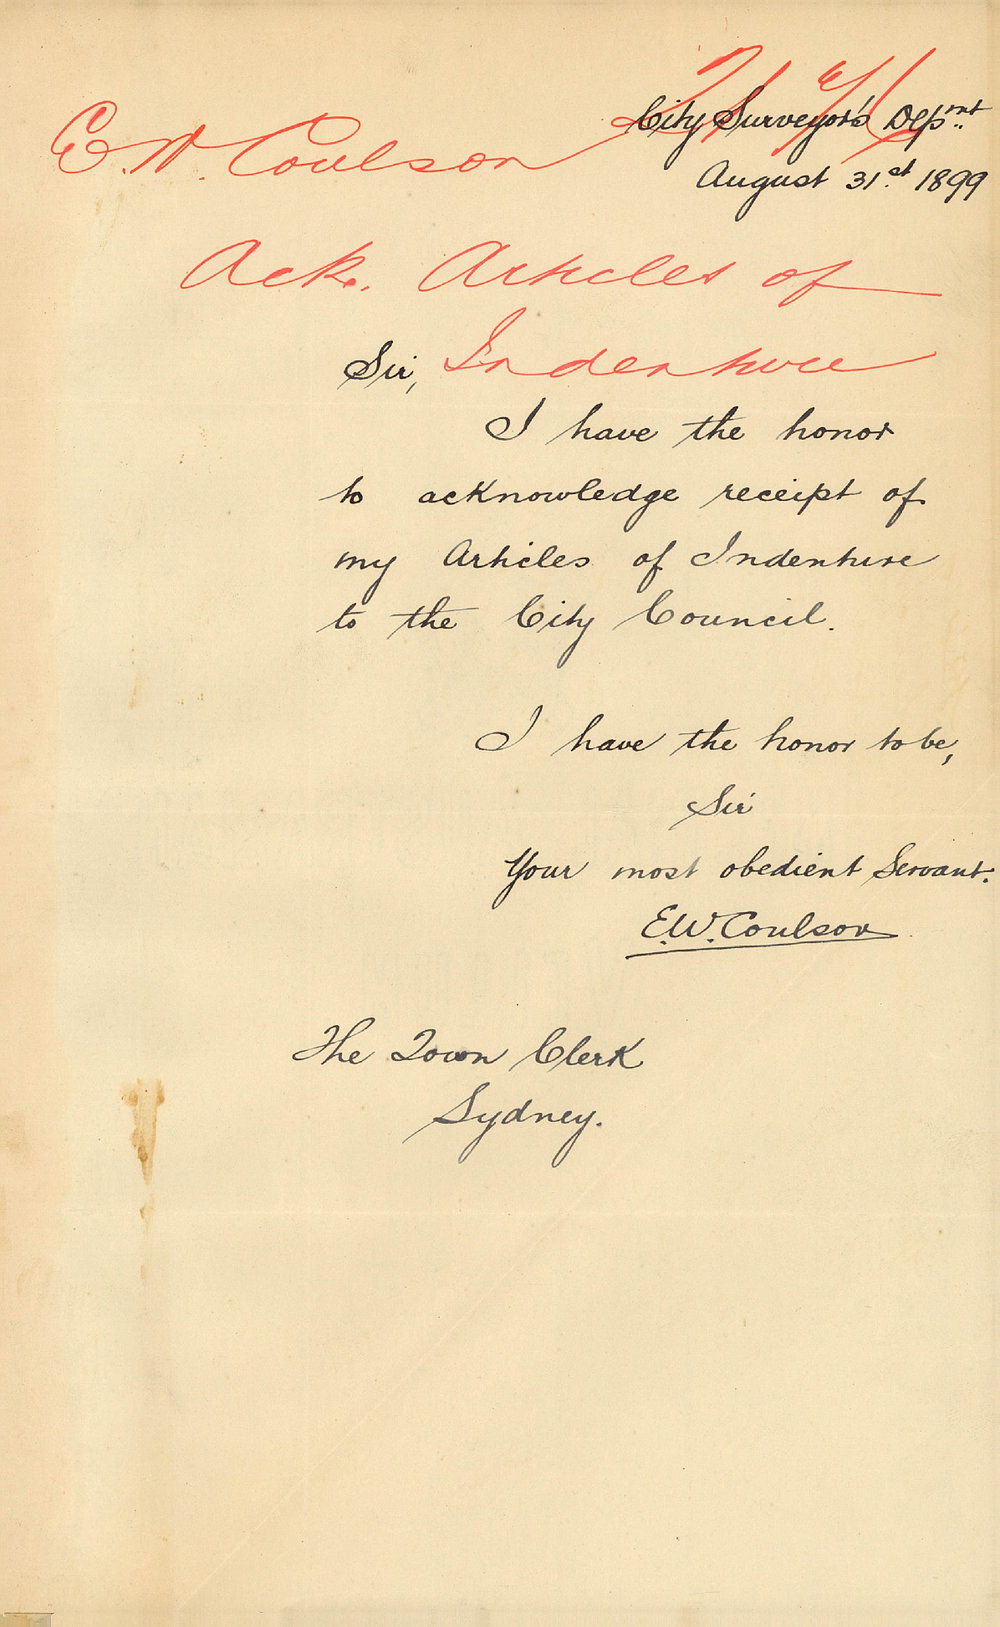 E.W. Coulson
City Surveyor's Depmt.
August 31st 1899
Ack. Articles of
Indenture
Sir,
I have the honor
to acknowledge receipt of
my Articles of Indenture
to the City Council.
I have the honor to be,
Sir
Your most obedient Servant.
E.W. Coulson
The Town Clerk
Sydney.